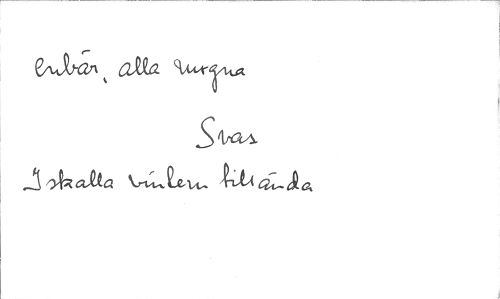 enbär, alla mogna
Svas
Iskalla vintern tillända